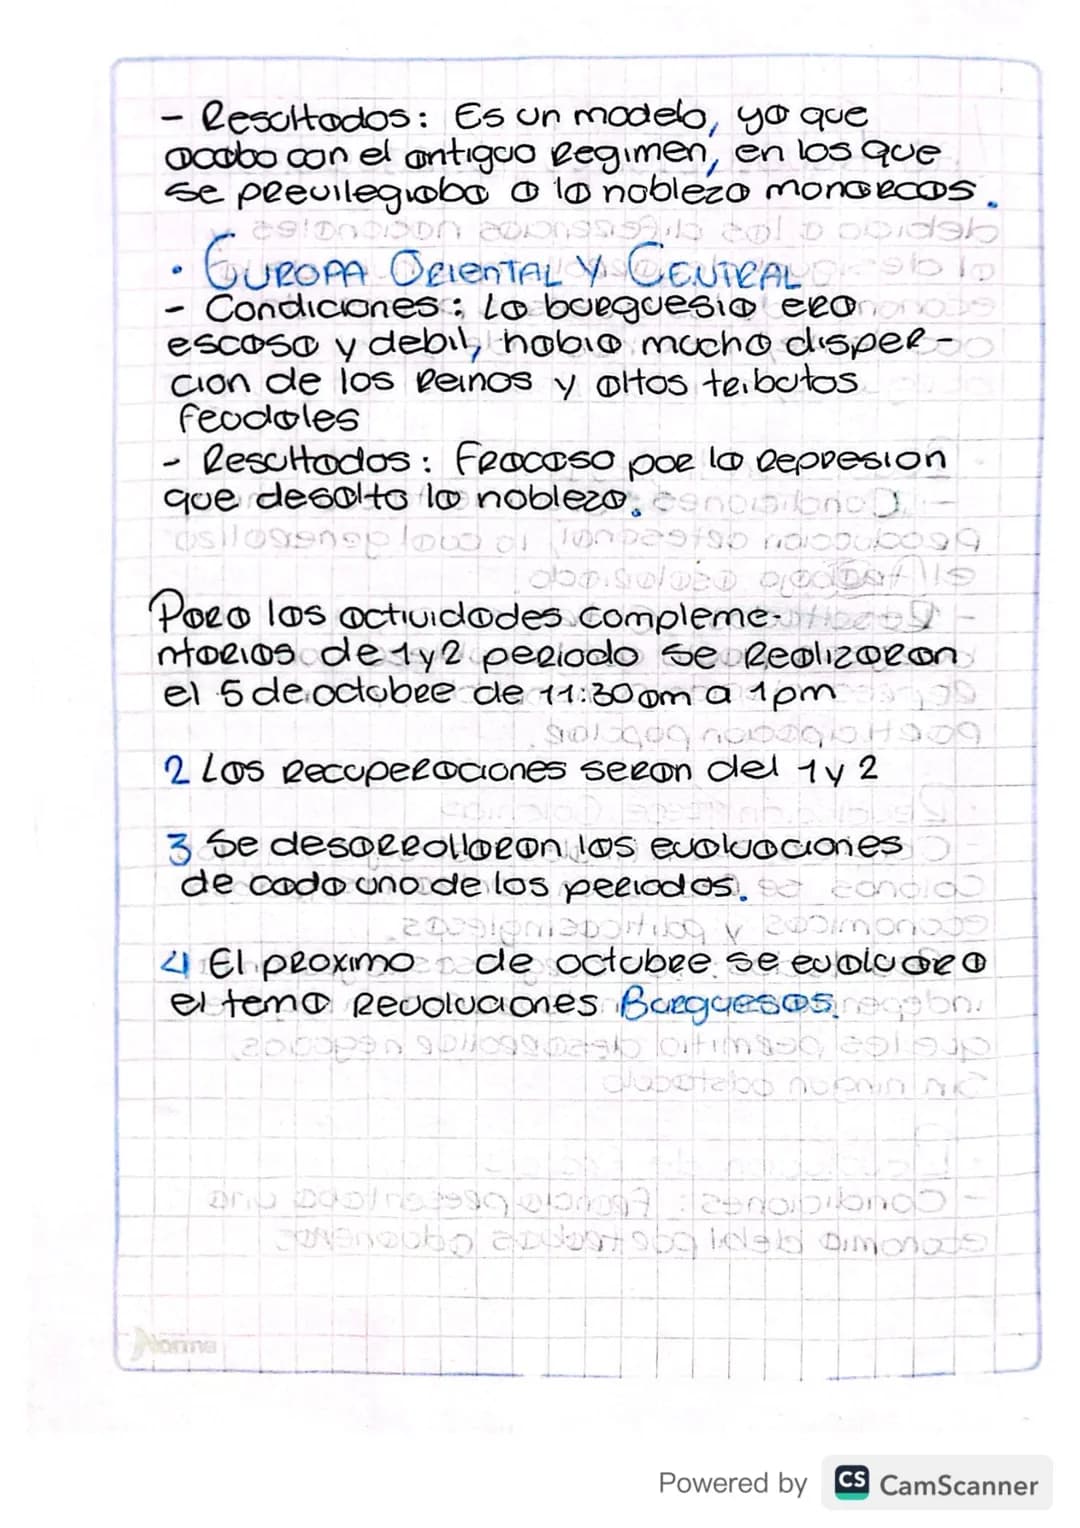 - Resultados: Es un modelo, ya que
acabo con el antiguo Regimen, en los que
se previlegiaba a la nobleza monarcas.
• EUROPA ORIENTAL Y CENTRAL
- Condiciones: La burguesia era
escasa y debil, habia mucha disper-
cion de los Reinos y altos tributos
feudales
- Resultados: Fracaso por la Represion
que desalto la nobleza.
Para las actividades compleme-
ntarias de 1y2 periodo se Realizaran
el 5 de octubre de 11:30am a 1pm
2 Las Recuperaciones seran del 1y2
3 Se desarrollaran las evaluaciones
de cada uno de los periodos.
4 El proximo de octubre se evaluara
el tema Revoluciones Burguesas.
Norma
Powered by CS CamScanner